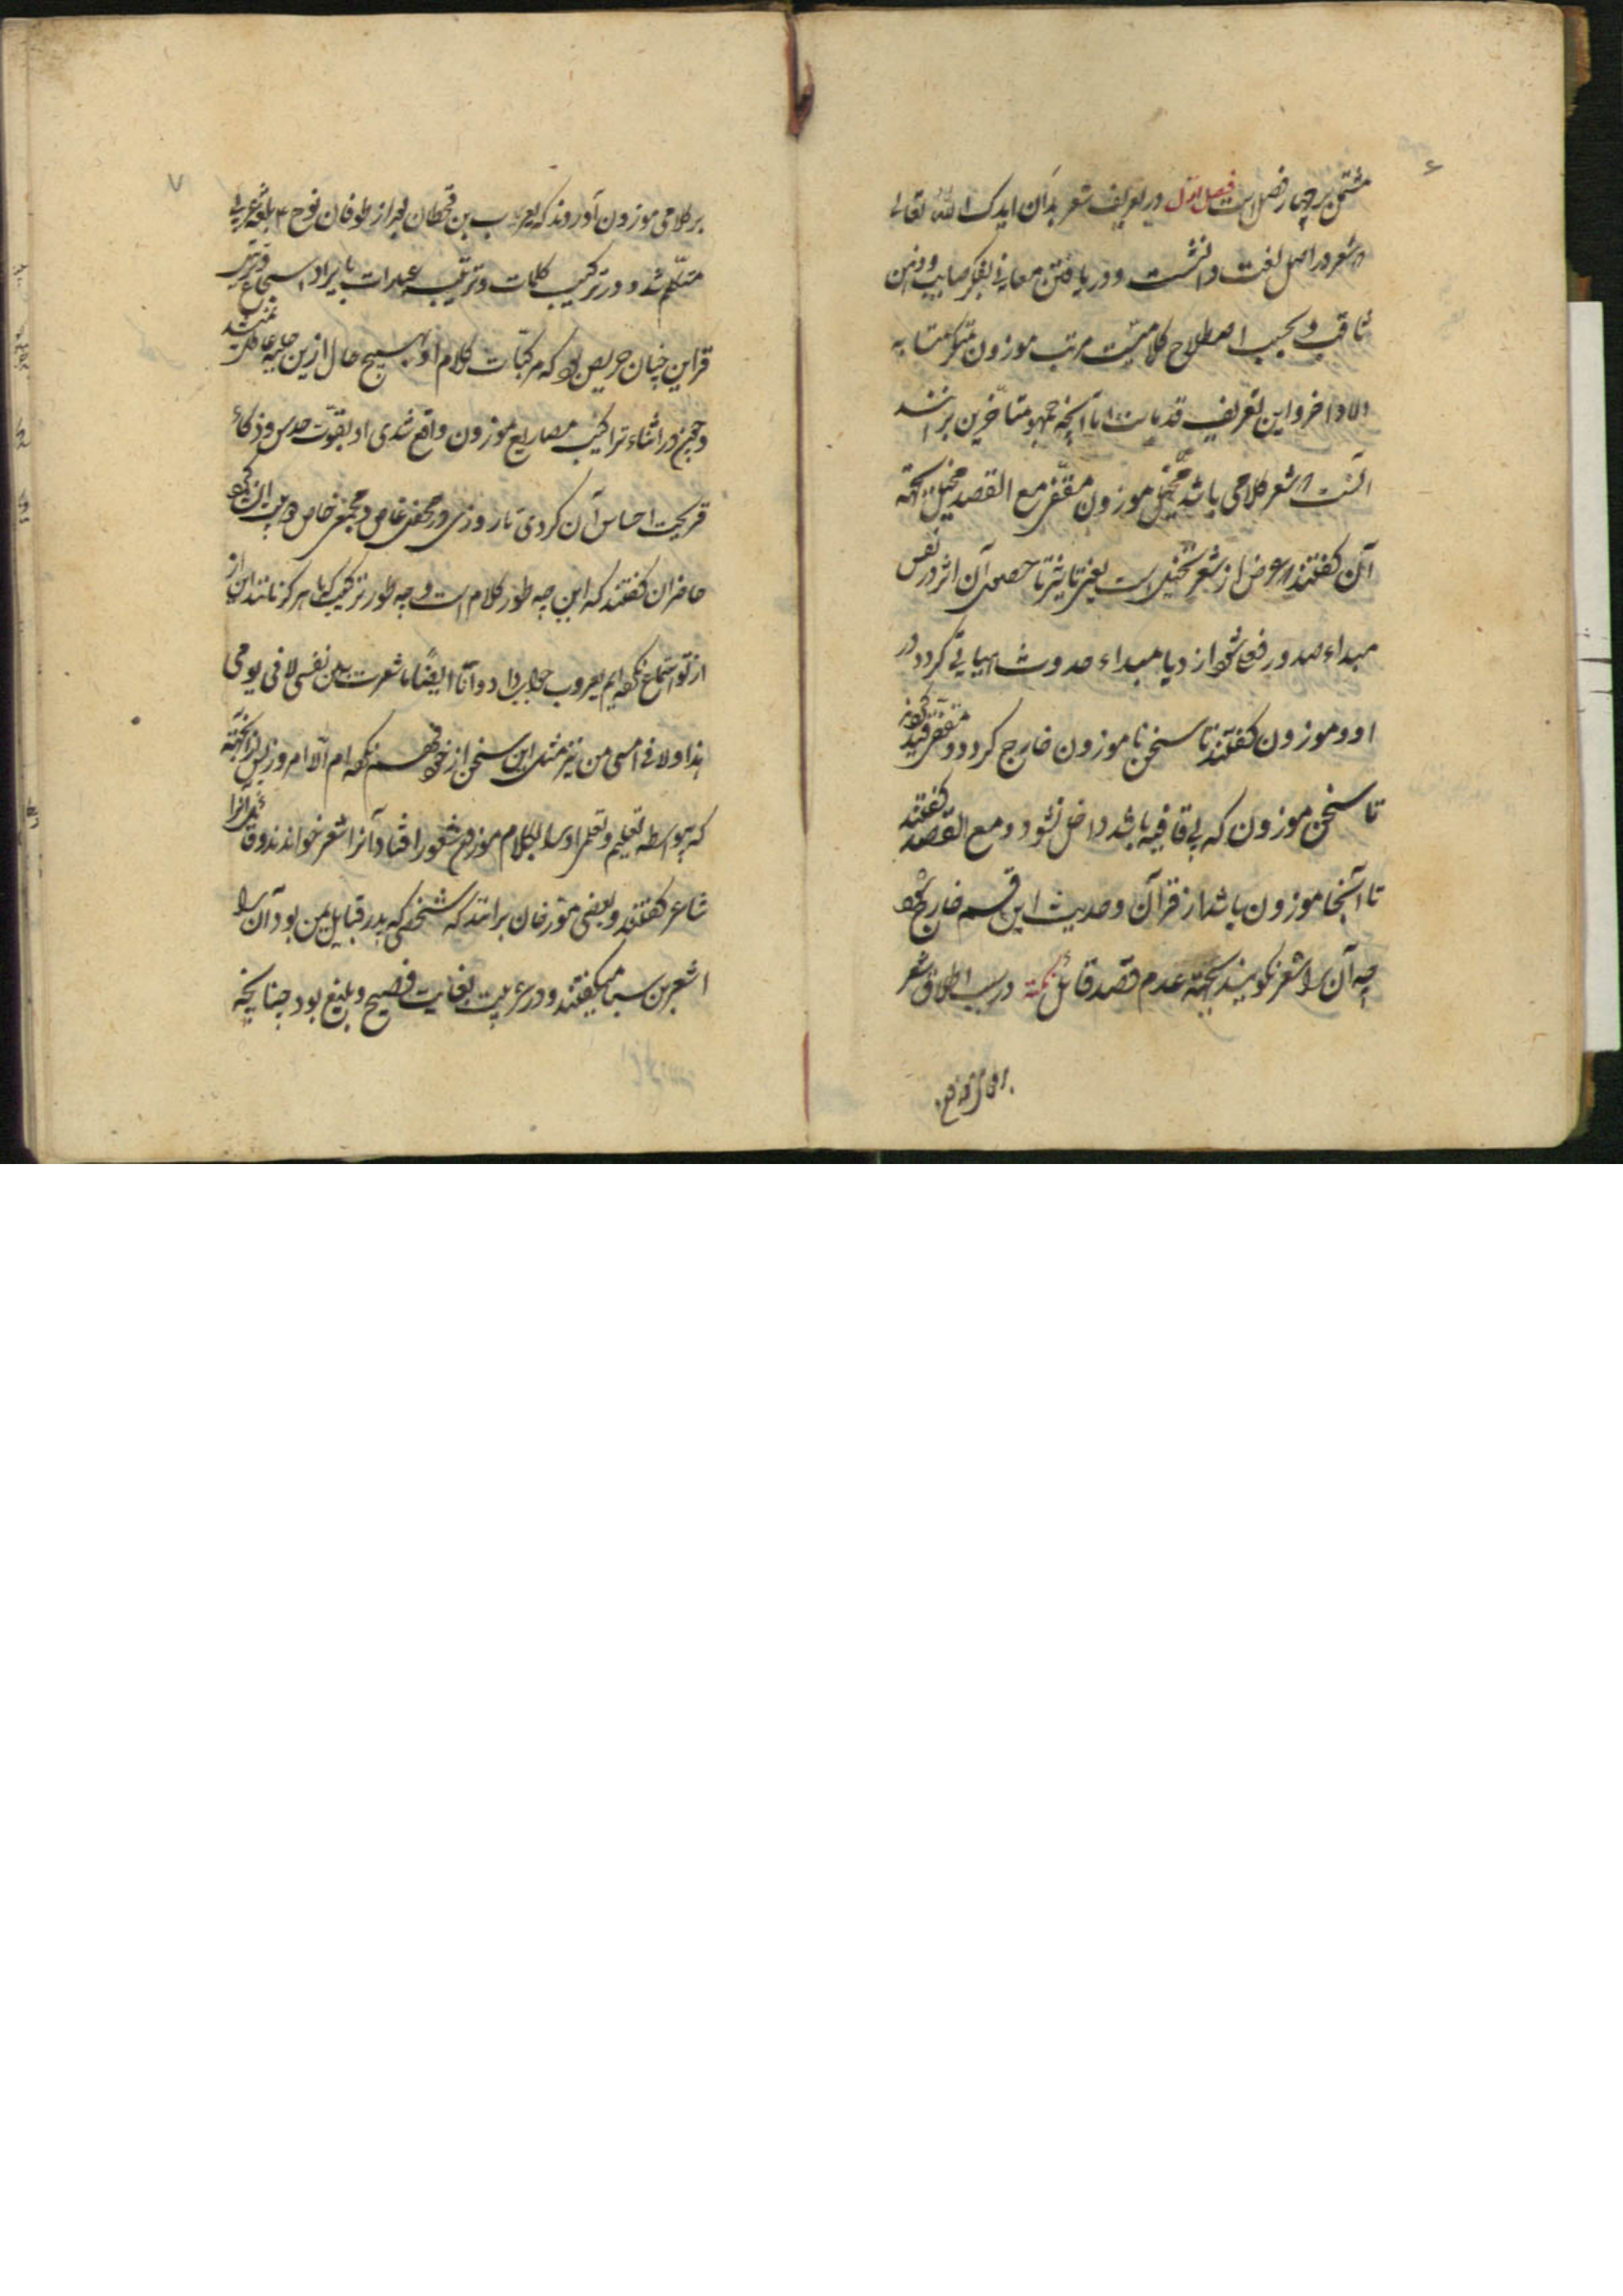 ۶
مشتمل بر چهار فصل است فصل اول در تعریف شعر بدان ایدک الله تعالی
که شعر در اصل لغت دانش است و دریافتن معانی بفکر صایب و ذهن
ثاقب و بحسب اصطلاح کلامیست مرتب موزون متکرر متشابه
الاواخر و این تعریف قدماست اما آنچه جمهور متأخرین برانند
آنست که شعر کلامی باشد مخیل موزون مقفی مع القصد مخیل بجهة
آن گفتند که غرض از شعر تخییل است یعنی تاثیر تا حصول آن اثر در نفس
مبداء صدور فعلی شود از و یا مبداء حدوث هیاتی گردد در
او و موزون گفتند تا سخن ناموزون خارج گردد و مقفی قید کردند
تا سخن موزون که بی قافیه باشد داخل نشود و مع القصد گفتند
تا آنجا موزون باشد از قرآن و حدیث این قسم خارج شود
چه آن را شعر نگویند بجهة عدم قصد قائل نکته در سبب اطلاق شعر
۷
بر کلامی موزون آورده‌اند که یعرب بن قحطان بعد از طوفان نوح ع بلغة عربی
متکلم شد و در ترکیب کلمات و ترتیب عبارات بایراد اسجاع و ترتیب
قراین چنان حریص بود که مرکبات کلام او بهیچ حال ازین حلیه عاطل نمیشد
و چون در اثناء تراکیب مصاریع موزون واقع شدی او بقوت حدس و ذکاء
قریحت احساس آن کردی تا روزی در محفلی غاص و مجمعی خاص دو بیت انشا کرد
حاضران گفتند که این چه طور کلام است و چه طور ترکیب که ما هرگز مانند این از
از تو استماع نکرده‌ایم یعرب جواب داد و انا ایضا ما شعرت به من نفسی لا فی یومی
هذا و لا فی امسی من نیز مثل این سخن از خود فهم نکرده‌ام الا امروز پس از آنجهة
که بواسطه تعلیم و تعلمی او را بکلام موزون شعور افتاد آنرا شعر خواندند و قائل آنرا
شاعر گفتند و بعضی مورخان برانند که شخصی که پدر قبایل یمن بود آن را
اشعر بن سبا میگفتند و در عربیت بغایت فصیح و بلیغ بود چنانچه